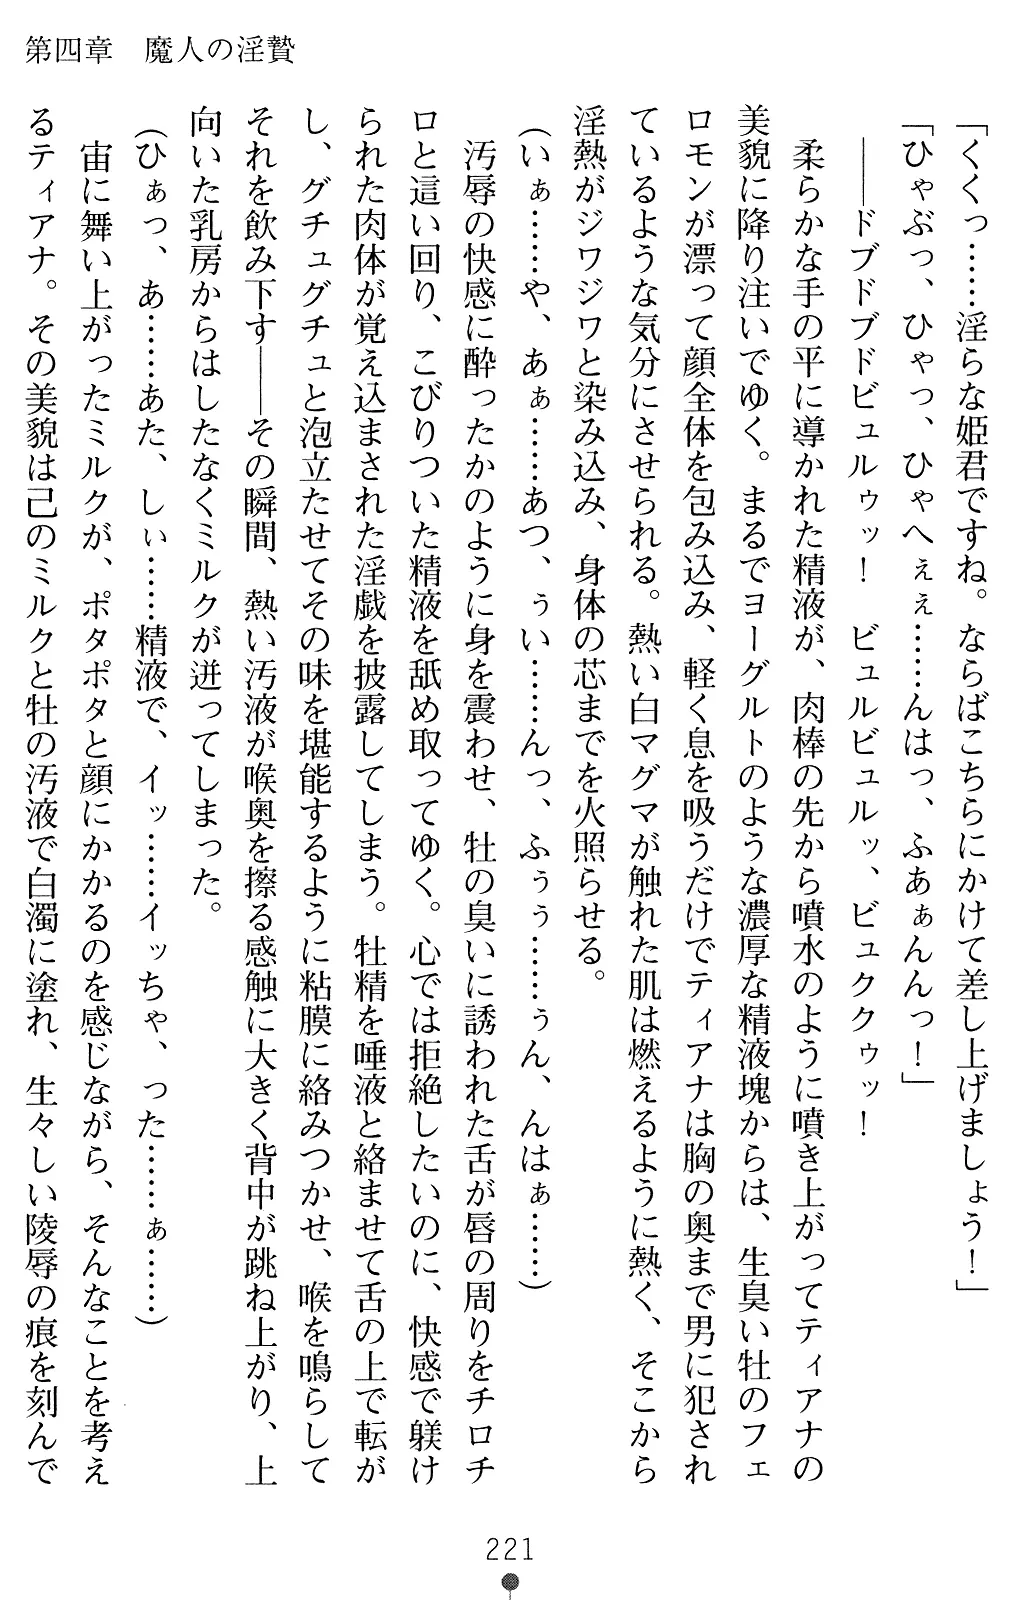 第四章　魔人の淫贄
「くくっ……淫らな姫君ですね。ならばこちらにかけて差し上げましょう！」
「ひゃぶっ、ひゃっ、ひゃへぇぇ……んはっ、ふあぁんんっ！」
――ドブドブドビュルゥッ！　ビュルビュルッ、ビュククゥッ！
柔らかな手の平に導かれた精液が、肉棒の先から噴水のように噴き上がってティアナの
美貌に降り注いでゆく。まるでヨーグルトのような濃厚な精液塊からは、生臭い牡のフェ
ロモンが漂って顔全体を包み込み、軽く息を吸うだけでティアナは胸の奥まで男に犯され
ているような気分にさせられる。熱い白マグマが触れた肌は燃えるように熱く、そこから
淫熱がジワジワと染み込み、身体の芯までを火照らせる。
（いぁ……や、あぁ……あつ、ぅい……んっ、ふぅぅ……ぅん、んはぁ……）
汚辱の快感に酔ったかのように身を震わせ、牡の臭いに誘われた舌が唇の周りをチロチ
ロと這い回り、こびりついた精液を舐め取ってゆく。心では拒絶したいのに、快感で躾け
られた肉体が覚え込まされた淫戯を披露してしまう。牡精を唾液と絡ませて舌の上で転が
し、グチュグチュと泡立たせてその味を堪能するように粘膜に絡みつかせ、喉を鳴らして
それを飲み下す――その瞬間、熱い汚液が喉奥を擦る感触に大きく背中が跳ね上がり、上
向いた乳房からはしたなくミルクが迸ってしまった。
（ひぁっ、あ……あた、しぃ……精液で、イッ……イッちゃ、った……ぁ……）
宙に舞い上がったミルクが、ポタポタと顔にかかるのを感じながら、そんなことを考え
るティアナ。その美貌は己のミルクと牡の汚液で白濁に塗れ、生々しい陵辱の痕を刻んで
221